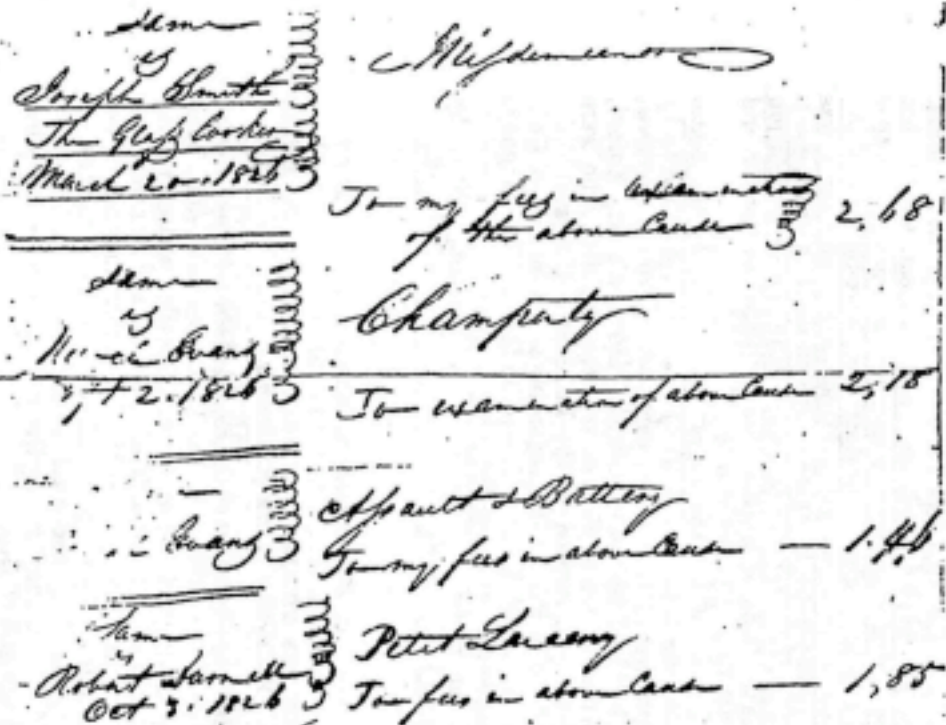 Same
vs
Joseph Smith
The Glass Looker
March 20, 1826
Misdemeanor
To my fees in examination
of the above Cause 2,68
Same
vs
Evans
2. 1826
Champerty
To examination of above Cause 2,18
Evans
Assault & Battery
To my fees in above Cause — 1.46
Same
vs
Robert
Oct 3: 1826
Petit Larceny
To fees in above Cause — 1,85